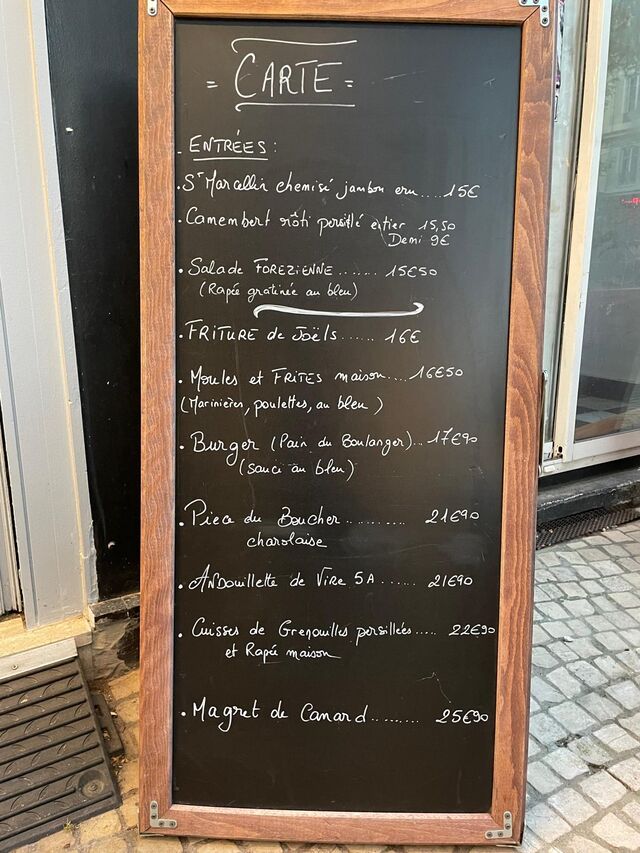 = CARTE =
- ENTRÉES :
. St Marcellin chemisé jambon cru .... 15€
. Camembert rôti persillé entier 15,50
Demi 9€
. Salade FOREZIENNE ....... 15€50
(Rapée gratinée au bleu)
. FRITURE de Joëls ...... 16€
. Moules et FRITES maison .... 16€50
(Marinières, poulettes, au bleu)
. Burger (Pain du Boulanger) ... 17€90
(sauce au bleu)
. Piece du Boucher .......... 21€90
charolaise
. ANDouillette de Vire 5A ...... 21€90
. Cuisses de Grenouilles persillées ..... 22€90
et Rapée maison
. Magret de Canard ......... 25€90